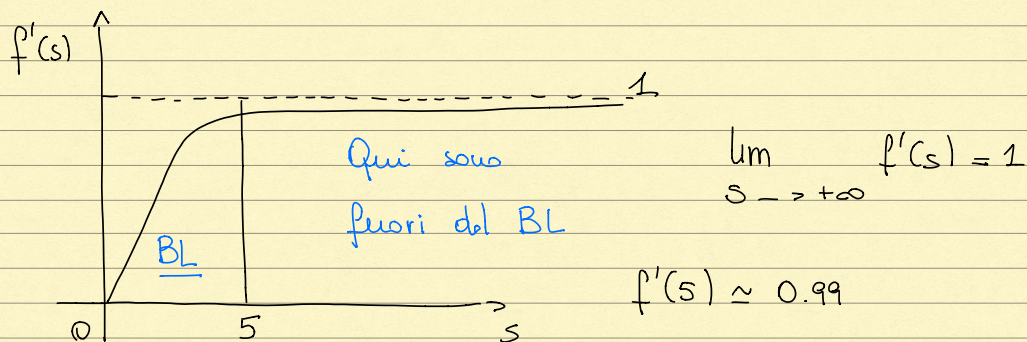 f'(s)
1
Qui sono
fuori dal BL
BL
0
5
s
lim f'(s) = 1
s -> +∞
f'(5) ≃ 0.99